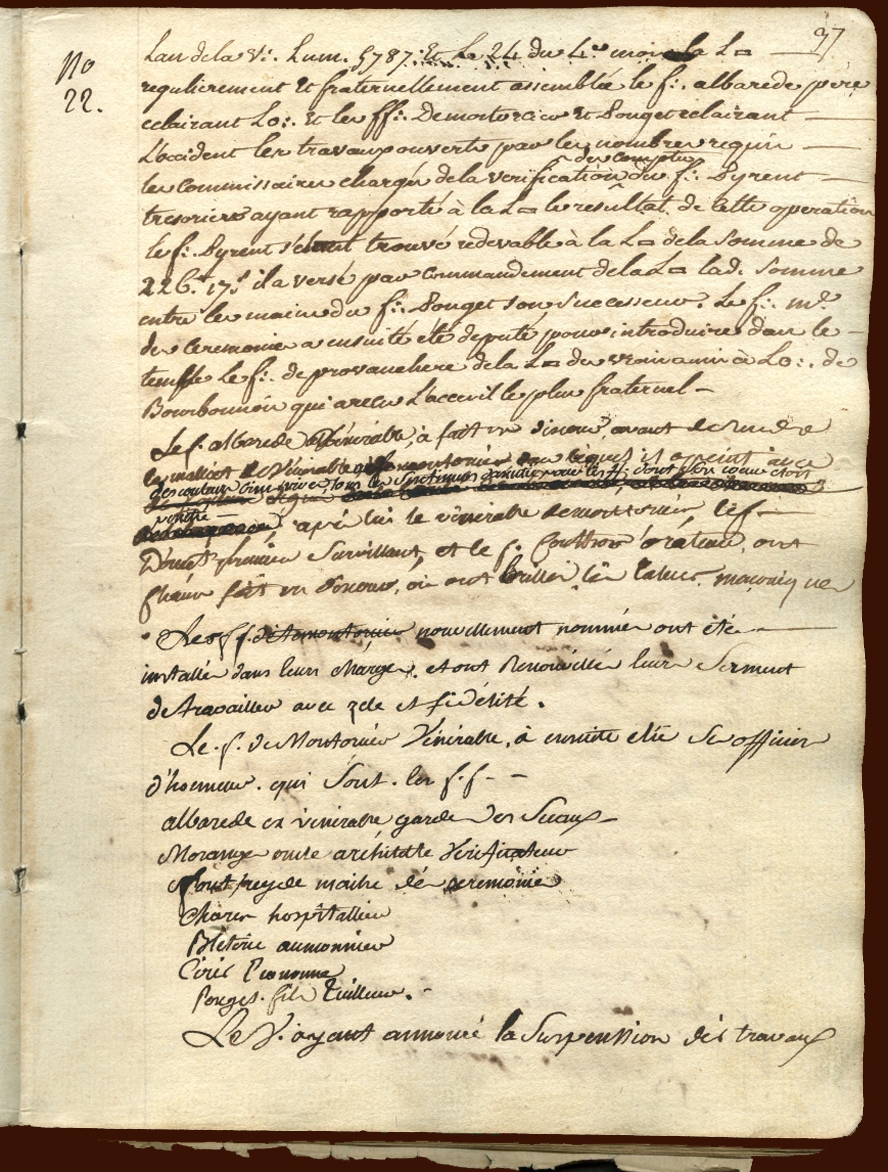 37
No
22.
Lan dela V∴ Lum. 5787. Et Le 24 du 4e mois la L▭
regulierement Et fraternellement assemblée le f∴ albarede pere
eclairant Lo∴ Et les ff∴ Demontorcier Et Pouget eclairant
L'occident les travaux ouverts par les nombres requis
des comptes
les Commissaires chargés dela verification du f∴ Dyrent
tresorier ayant rapporté à la L▭ le resultat de cette operation
le f∴ Dyrent s'étant trouvé redevable à la L▭ dela Somme de
226.tt 17.s il a versé par Commandement dela L▭ lad. Somme
entre les mains du f∴ Pouget son Successeur. Le f∴ me
de Ceremonie a ensuite été deputé pour introduire dans le
temple Le f∴ de provanchere dela L▭ des vrais amis à Lo∴ de
Bourbonnois qui a recu L'acceuil le plus fraternel
Le f. albarede Vénérable, à fait un discours, avant de rendre
les maillet de Vénérable il a peint avec
des couleurs bien vives tous les sentimens pour les ff∴ dont son coeur étoit
penetré
après lui le vénérable demontorcier, le f
premier Surveillant, et le f. orateur, ont
chacun fait un discours, où ont brillé les talens maçoniques
Les ff. nouvellement nommés ont été
installés dans leurs charges. et ont Renouvellé leurs Serment
de travailler avec zele et fidélité.
Le. f. de Montorcier Vénérable, à ensuite elu Se officiers
d'honneur. qui Sont. les f.f.
albarede ex vénérable garde des Sceaux
Morange oncle architecte Verificateur
maitre des ceremonies
hospitallier
aumonnier
Economme
Pouget. fils tuilleur.
Le V. ayant annoncé la Suspenssion des travaux